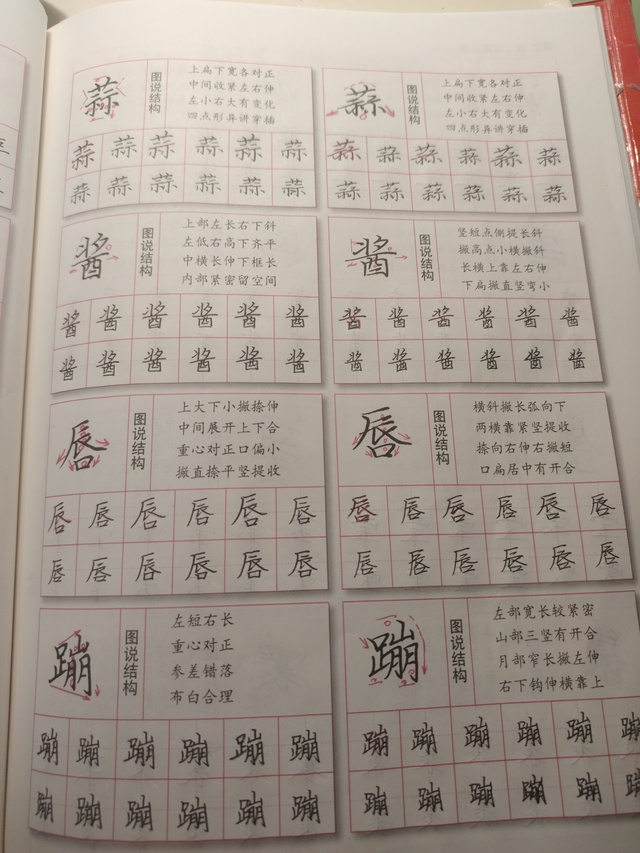 蒜
图说结构
上扁下宽各对正
中间收紧左右伸
左小右大有变化
四点形异讲穿插
蒜蒜蒜蒜蒜蒜
蒜蒜蒜蒜蒜蒜
蒜
图说结构
上扁下宽各对正
中间收紧左右伸
左小右大有变化
四点形异讲穿插
蒜蒜蒜蒜蒜蒜
蒜蒜蒜蒜蒜蒜
酱
图说结构
上部左长右下斜
左低右高下齐平
中横长伸下框长
内部紧密留空间
酱酱酱酱酱酱
酱酱酱酱酱酱
酱
图说结构
竖短点侧提长斜
撇高点小横撇斜
长横上靠左右伸
下扁撇直竖弯小
酱酱酱酱酱酱
酱酱酱酱酱酱
唇
图说结构
上大下小撇捺伸
中间展开上下合
重心对正口偏小
撇直捺平竖提收
唇唇唇唇唇唇
唇唇唇唇唇唇
唇
图说结构
横斜撇长弧向下
两横靠紧竖提收
捺向右伸右撇短
口扁居中有开合
唇唇唇唇唇唇
唇唇唇唇唇唇
蹦
图说结构
左短右长
重心对正
参差错落
布白合理
蹦蹦蹦蹦蹦蹦
蹦蹦蹦蹦蹦蹦
蹦
图说结构
左部宽长较紧密
山部三竖有开合
月部窄长撇左伸
右下钩伸横靠上
蹦蹦蹦蹦蹦蹦
蹦蹦蹦蹦蹦蹦